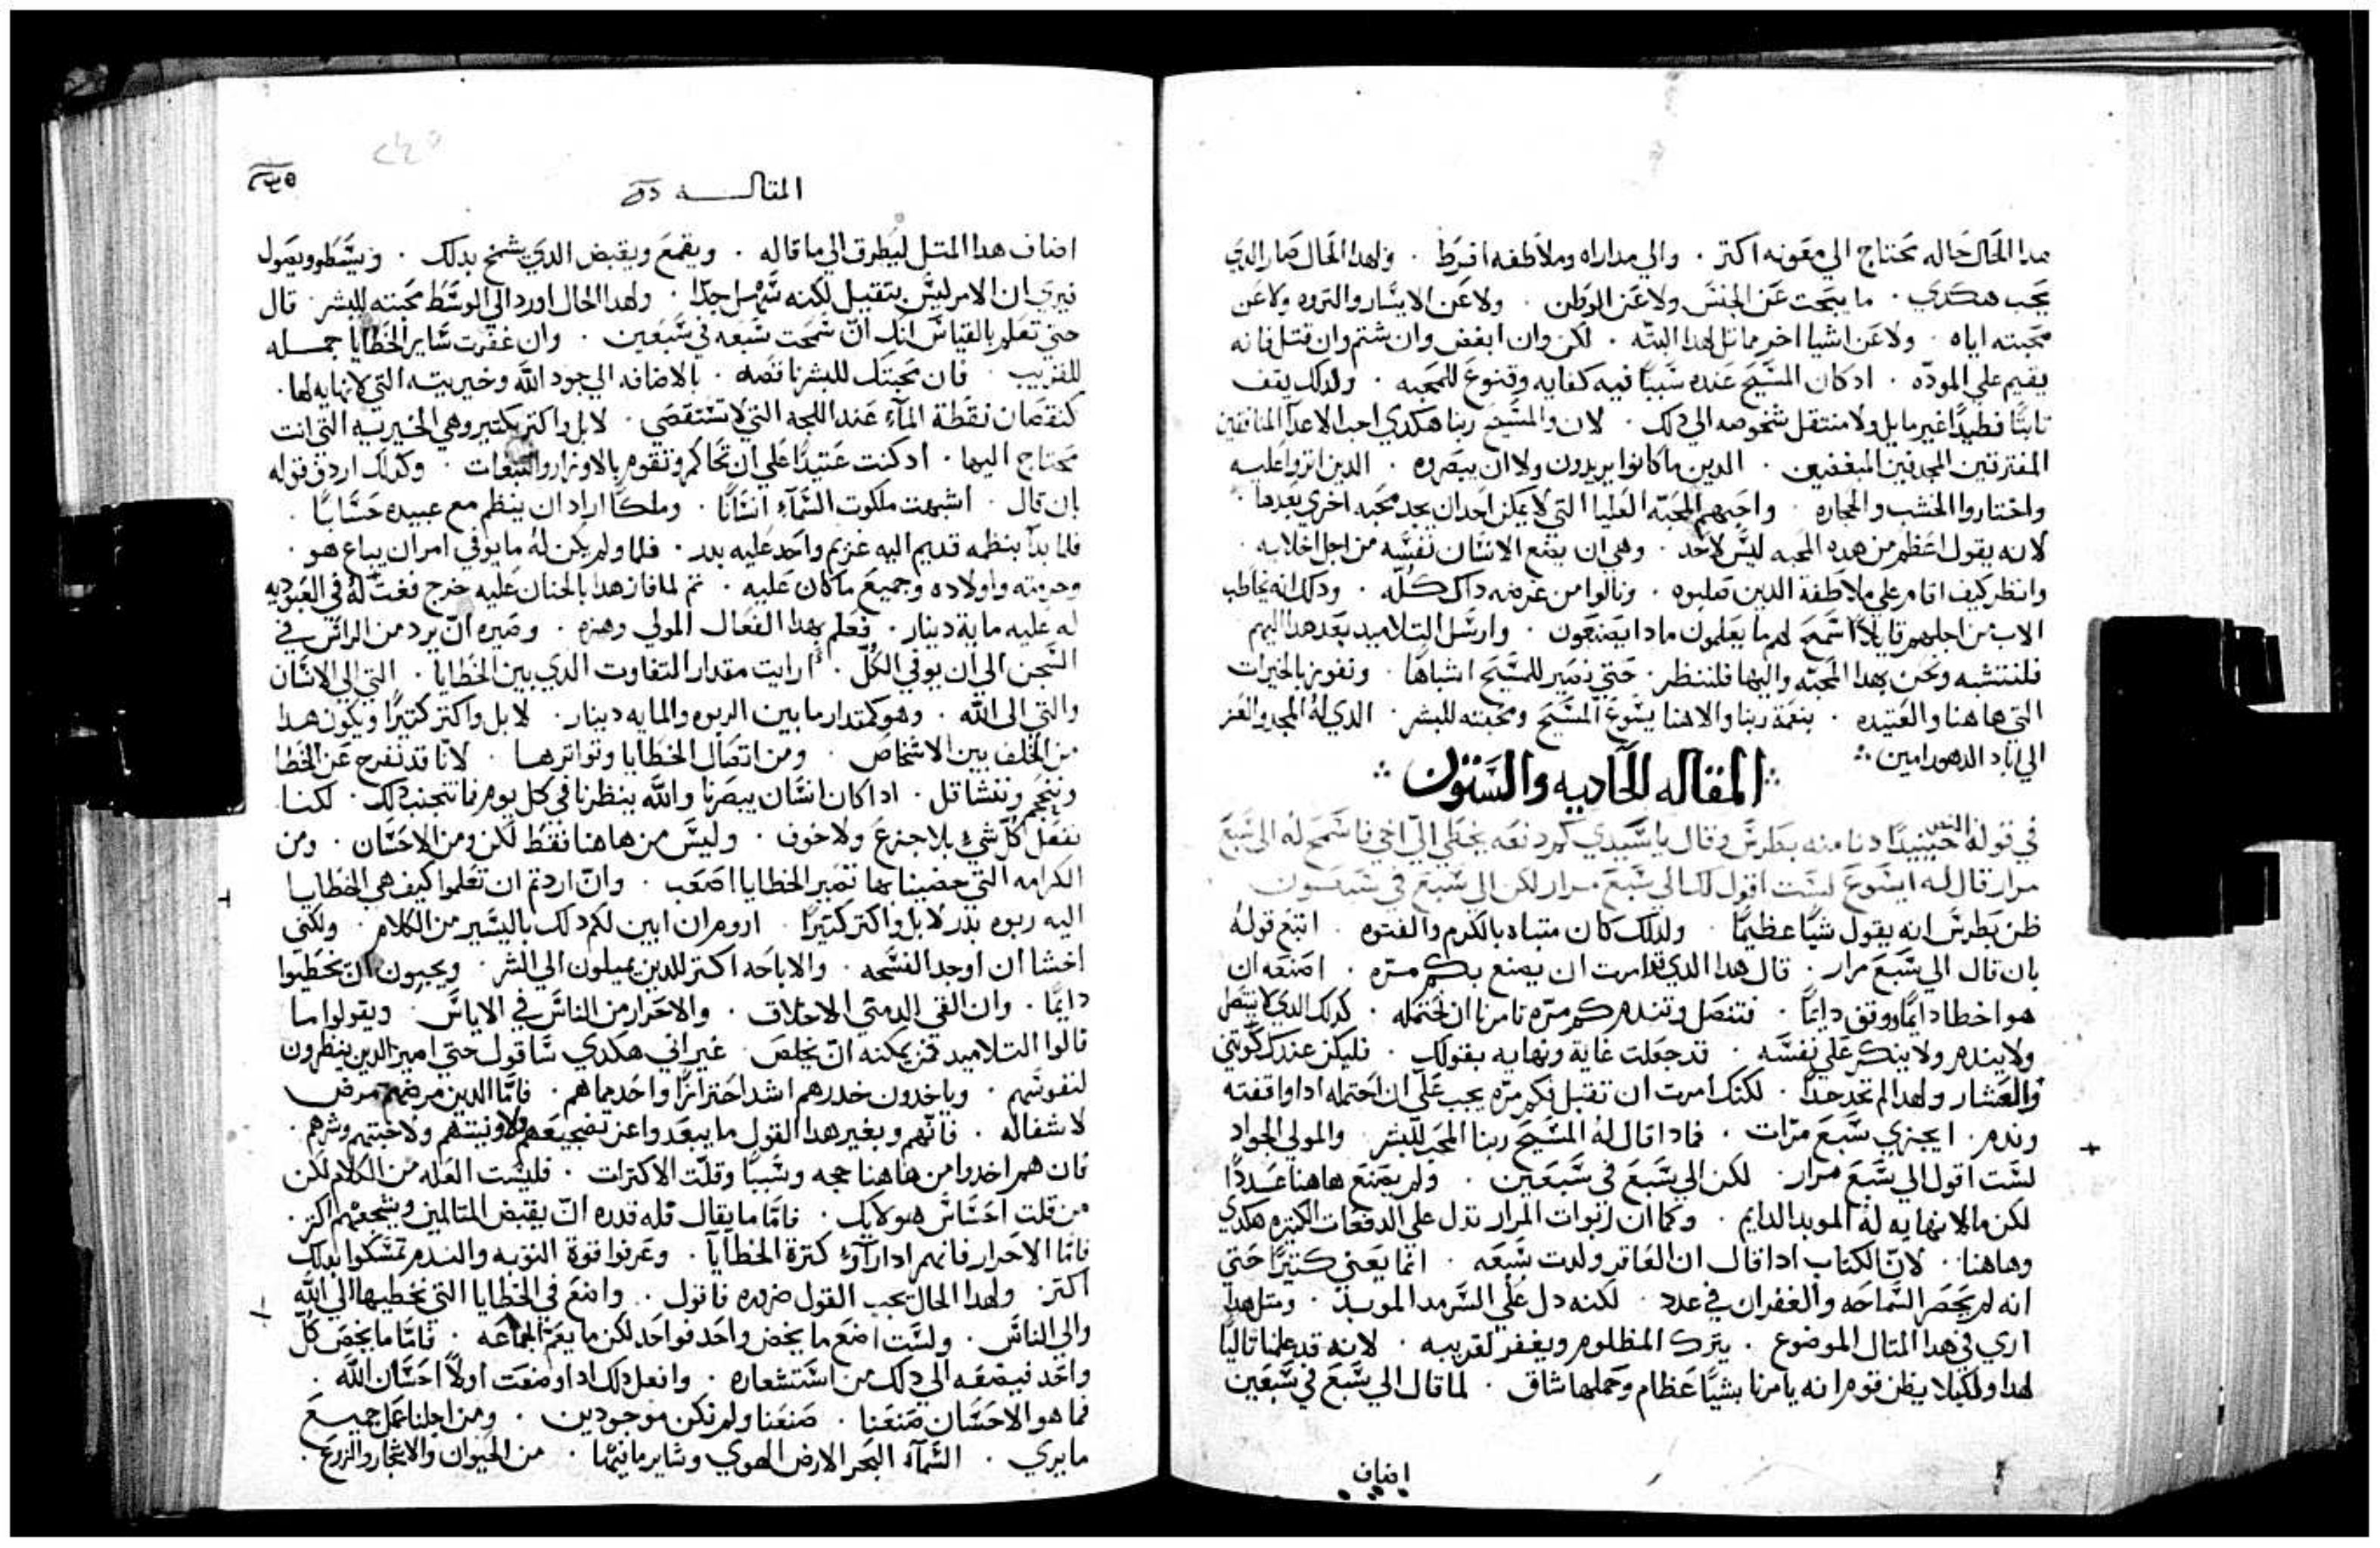 هدا الحال حاله تحتاج الي معونه اكتر . والي مداراه وملاطفه افرط . ولهدا الحال صار الدي
يحب هكدي . ما يبحت عن الجنس ولا عن الوطن . ولا عن الايسار والتروه ولا عن
محبته اياه . ولا عن اشيا اخر مماتل لهدا البته . لكن وان ابغض وان شتم وان قتل فانه
يقيم علي الموده . ادكان المسيح عنده سببًا فيه كفايه وقنوع للمحبه . ولدلك يقف
تابتًا وطيدًا غير مايل ولا منتقل شخوصه الي دلك . لان والمسيح ربنا هكدي احب الاعدا المنافقين
المفترتين المجدفين المبغضين . الدين ما كانوا يريدون ولا ان يبصروه . الدين اتروا عليه
واختاروا الخشب والحجاره . واحبهم المحبه العليا التي لا يمكن احد ان يجد محبه اخري بعدها .
لانه يقول اعظم من هده المحبه ليس لاحد . وهي ان يضع الانسان نفسه من اجل اخلايه .
وانظر كيف اقام علي ملاطفة الدين صلبوه . ونالوا من عرضه داك كله . ودلك انه يخاطب
الاب من اجلهم قايلاً اسمح لهم ما يعلمون مادا يصنعون . وارسل التلاميد بعد هدا اليهم
فلنتشبه ونحن بهدا المحبه واليها فلننظر . حتي نصير للمسيح اشباهًا . ونفوز بالخيرات
التي هاهنا والعتيده . بنعمة ربنا والاهنا يسوع المسيح ومحبته للبشر . الدي له المجد والعز
الي اباد الدهور امين
المقاله الحاديه والستون
في قوله النص حينيدًا دنا منه بطرس وقال يا سيدي كم دفعه يخطي الي اخي فاسمح له الي سبع
مرار قال له ايسوع لست اقول لك الي سبع مرار لكن الي سبع في سبعون
ظن بطرس انه يقول شيًا عظيمًا . ولدلك كان متباه بالكرم والفتوه . اتبع قوله
بان قال الي سبع مرار . قال هدا الدي قد امرت ان يصنع بكم مره . اصنعه ان
هو اخطا دايمًا ووقف دايمًا . فتنصل وتندم كم مره تامرنا ان نحتمله . كدلك الدي لا يتنصل
ولا يندم ولا ينكر علي نفسه . قد جعلت غاية ونهايه بقولك . فليكن عندك كوتني
والعشار ولهدا لم تحد حدًا . لكنك امرت ان تقبل فكم مره يجب علي ان احتمله ادا واقفته
وندم . ايجزي سبع مرات . فمادا قال له المسيح ربنا المحب للبشر . والمولي الجواد
لست اقول الي سبع مرار . لكن الي سبع في سبعين . ولم يصنع هاهنا عددًا
لكن ما لا نهايه له الموبد الدايم . وكما ان ربوات المرار تدل علي الدفعات الكتيره هكدي
وهاهنا . لان الكتاب ادا قال ان العاقر ولدت سبعه . انما يعني كتيرًا حتي
انه لم يحصر السماحه والغفران في عدد . لكنه دل علي السرمد الموبد . ومتل هدا
اري في هدا المتال الموضوع . يترك المظلوم ويغفر لقريبه . لانه قد علمنا تاليًا
لهدا ولكيلا يظن قوم انه يامرنا بشيًا عظام وحملها شاق . لما قال الي سبع في سبعين
اضاف
٢٤٥
المقاله
اضاف هدا المتل ليطرق الي ما قاله . ويقمع ويقبض الدي يشمخ بدلك . ويصول
فيري ان الامر ليس بتقيل لكنه سهل جدًا . ولهدا الحال اورد الي الوسط محبته للبشر . قال
حتي تعلم بالقياس انك ان سمحت سبعه في سبعين . وان غفرت ساير الخطايا جمله
للقريب . فان محبتك للبشر ناقصه . بالاضافه الي جود الله وخيريته التي لا نهايه لها .
كنقصان نقطة الماء عند اللجه التي لا تستقصي . لا بل واكتر بكتير وهي الخيريه التي انت
محتاج اليها . ادكنت عتيدًا علي ان تحاكم وتقوم بالاوزار والتبعات . وكدلك اردف قوله
بان قال . اشبهت ملكوت السماء انسانًا . وملكًا اراد ان ينظم مع عبيده حسابًا .
فلما بدا بنظمه قديم اليه غريم واحد عليه بدر . فلما ولم يكن له ما يوفي امر ان يباع هو .
وحرمته واولاده وجميع ما كان عليه . تم لما فاز هدا بالحنان عليه خرج في العبوديه
له عليه ماية دينار . فعلم بهدا الفعال المولي وهزه . وصيره ان يرد من الراس في
السجن الي ان يوفي الكل . ارايت مقدار التفاوت الدي بين الخطايا . التي الي الانسان
والتي الي الله . وهو كمقدار ما بين الربوه والمايه دينار . لا بل واكتر كتيرًا ويكون هدا
من الخلف بين الاشخاص . ومن اتصال الخطايا وتواترها . لانا قد نفرح عن الخطا
ونحجم ونتشاقل . ادا كان انسان يبصرنا والله ينظرنا في كل يوم فما نتجنب دلك . لكننا
نفعل كل شي بلا جزع ولا خوف . وليس من هاهنا فقط لكن ومن الاحسان . ومن
الكرامه التي حضينا بها تصير الخطايا اصعب . وان اردتم ان تعلموا كيف هي الخطايا
اليه ربوه بدر لا بل واكتر كتيرًا . اروم ان ابين لكم دلك باليسير من الكلام . ولكني
اخشا ان اوجد الفسحه . والاباحه اكتر للدين يميلون الي الشر . ويحبون ان يخطيوا
دايمًا . وان القي الدمتي الاخلاق . والاحرار من الناس في الاياس . ويقولوا ما
قالوا التلاميد فمن يمكنه ان يخلص . غير اني هكدي ساقول حتي اصير الدين ينظرون
لنفوسهم . وياخدون حدرهم اشد احترازًا واحد مما هم . فاما الدين مرضهم مرض
لا شفا له . فانهم وبغير هدا القول ما يبعدوا عن تضجيعهم وونيتهم ولا خبتهم وشرهم .
فان هم اخدوا من هاهنا حجه وسببًا وقلت الاكترات . فليست العله من الكلام لكن
من قلت احساس هولايك . فاما ما يقال فله قدره ان يقبض المتالمين ويشجعهم اكتر .
فاما الاحرار فانهم ادا راوا كترة الخطايا . وعرفوا قوة التوبه والندم تمسكوا بدلك
اكتر . ولهدا الحال يجب القول ضروره فاقول . واضع في الخطايا التي نخطيها الي الله
والي الناس . ولست اضع ما يخص واحد فواحد لكن ما يعم الجماعه . فاما ما يخص كل
واحد فيضيفه الي دلك من استشعاره . وافعل دلك ادا وضعت اولاً احسان الله .
فما هو الاحسان صنعنا . صنعنا ولم نكن موجودين . ومن اجلنا عمل جميع
ما يري . السماء البحر الارض الهوي وساير ما فيها . من الحيوان والاشجار والزرع .